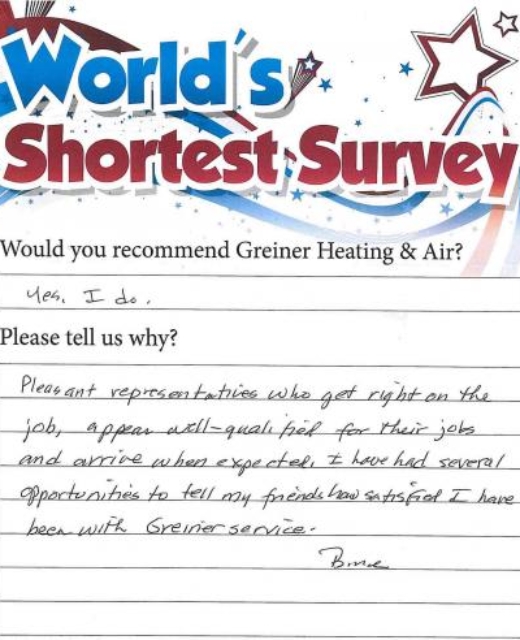 World's
Shortest Survey
Would you recommend Greiner Heating & Air?
Yes, I do.
Please tell us why?
Pleasant representatives who get right on the
job, appear well-qualified for their jobs
and arrive when expected. I have had several
opportunities to tell my friends how satisfied I have
been with Greiner service.